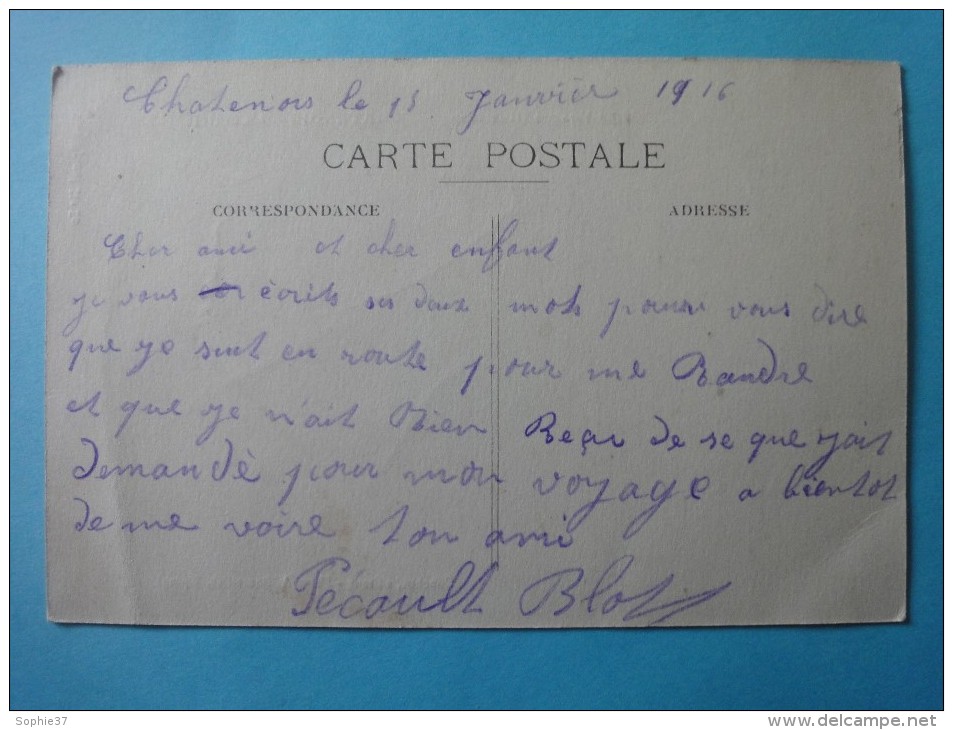 Chatenois le 15 Janvièr 1916
CARTE POSTALE
CORRESPONDANCE
ADRESSE
Cher ami et cher enfant
je vous écrits ses deux mots pour vous dire
que je suit en route pour me Randre
et que je n'ait Rien Reçu de se que jait
demandè pour mon voyage a bientot
de me voire ton ami
Pécault Blot
Sophie37
www.delcampe.net